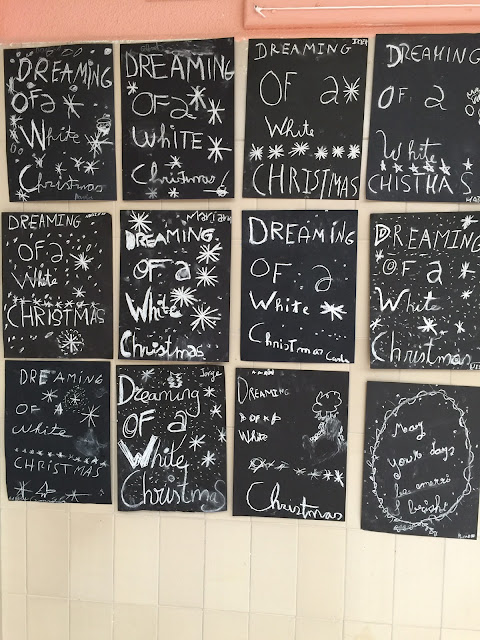 DREAMING
OF a
White
Christmas
DREAMING
OF a
WHITE
Christmas
DREAMING
OF a
White
CHRISTMAS
DREAMING
OF a
White
CHISTMAS
DREAMING
OF a
White
CHRISTMAS
Mariana
DREAMING
OF a
White
Christmas
DREAMING
OF a
White
Christmas
Carla
DREAMING
OF a
White
Christmas
DREAMING
OF a
White
CHRISTMAS
Jorge
Dreaming
OF a
White
Christmas
DREAMING
White
Christmas
May
your days
be merri